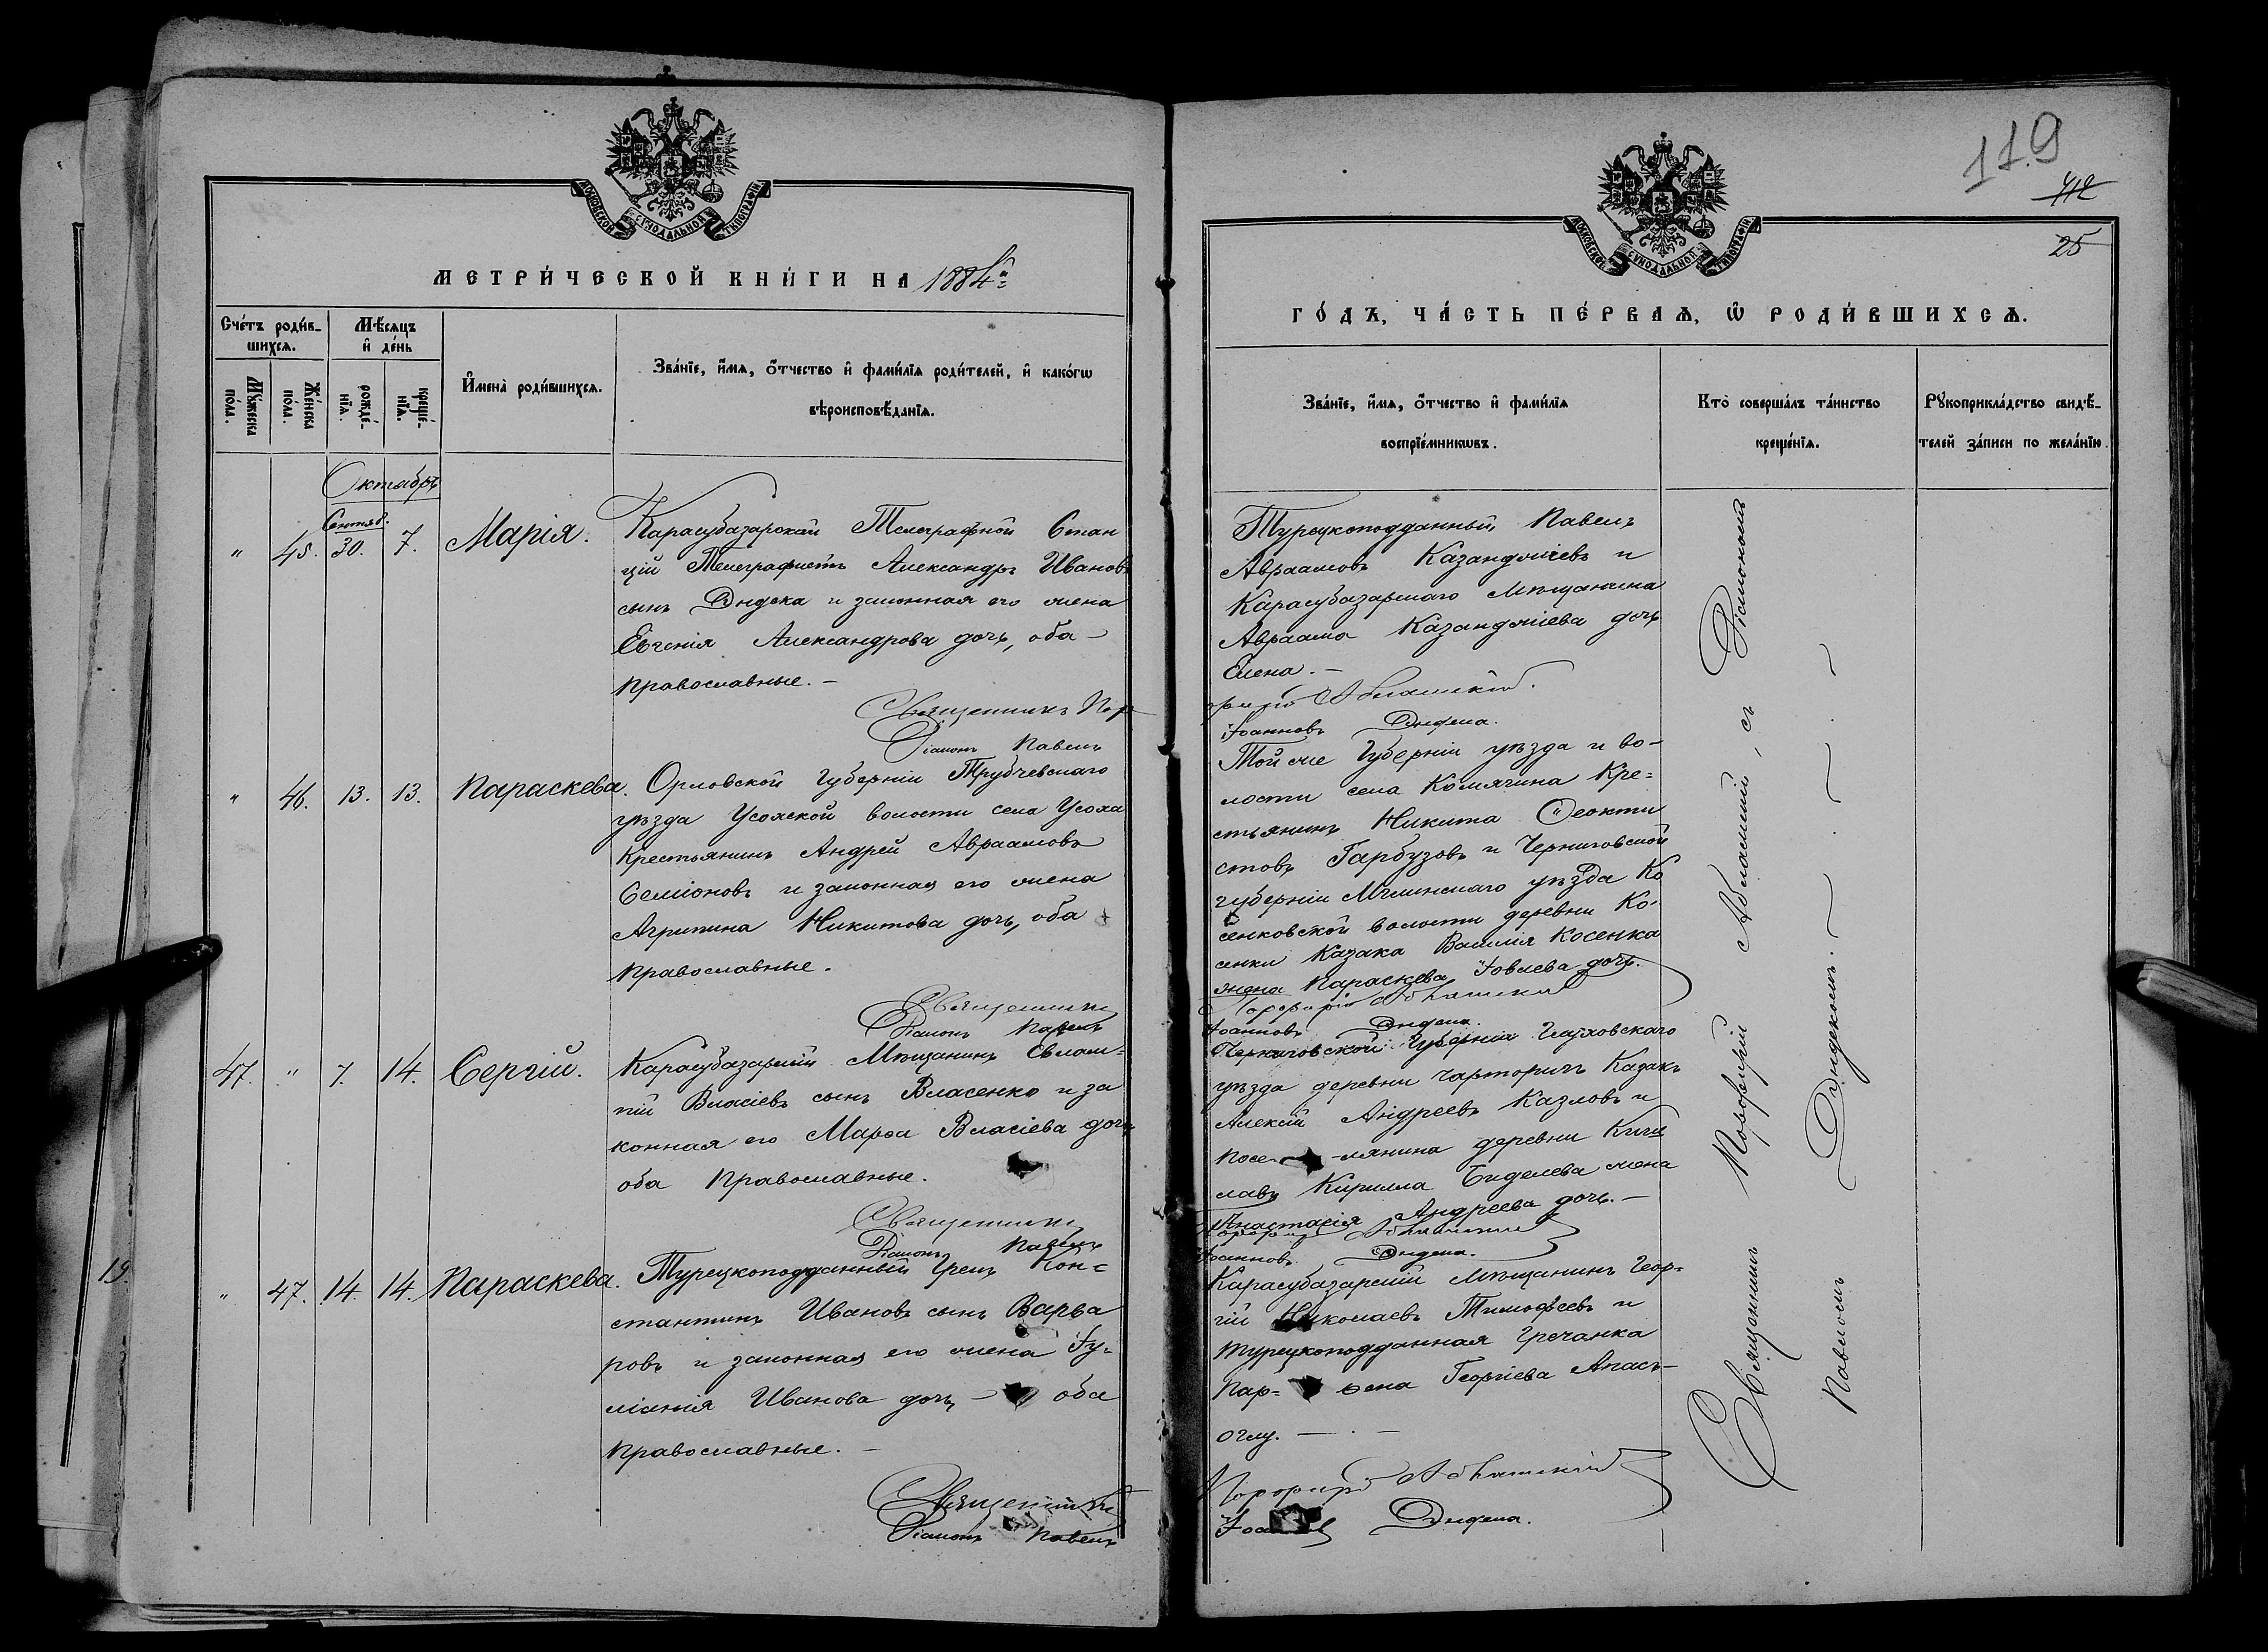 МОСКОВСКОЙ СѴНОДАЛЬНОЙ ТИПОГРАФІИ
МЕТРИ́ЧЕСКОЙ КНИ́ГИ НА 1884й
Сче́тъ роди́в-
шихся.
Мѣ́сяцъ
и҆ де́нь
Мꙋ́жеска
по́ла.
Же́нска
по́ла.
рожде́-
нїѧ.
креще́-
нїѧ.
И҆мена̀ роди́вшихсѧ.
Зва́нїе, и҆́мѧ, ѻ҆́тчество и҆ фами́лїѧ роди́телей, и҆ како́гѡ
вѣроисповѣ́данїѧ.
Октябрь
Сентяб.
" 45. 30. 7. Марія.
Карасубазарской Телеграфной Стан
ціи Телеграфистъ Александръ Ивановъ
сынъ Дидека и законная его жена
Евгенія Александрова дочь, оба –
православные. –
Священникъ Пор
Діаконъ Павелъ
" 46. 13. 13. Параскева.
Орловской Губерніи Трубчевскаго
уѣзда Усожской волости села Усожа
Крестьянинъ Андрей Авраамовъ
Семіоновъ и законная его жена
Агрипина Никитова дочь, оба
православные.
Священникъ
Діаконъ Павелъ
47. " 7. 14. Сергій.
Карасубазарскій Мѣщанинъ Евлам-
пій Власіевъ сынъ Власенко и за
конная его Марѳа Власіева дочь
оба Православные.
Священникъ
Діаконъ Павелъ
" 47. 14. 14. Параскева.
Турецкоподданный Грекъ Кон-
стантинъ Ивановъ сынъ Варва
ровъ и законная его жена Іу-
ліанія Иванова дочь – оба
православные. –
Священникъ
Діаконъ Павелъ
19.
МОСКОВСКОЙ СѴНОДАЛЬНОЙ ТИПОГРАФІИ
119
412
25
ГО́ДЪ, ЧА́СТЬ ПЕ́РВАѦ, Ѡ҆ РОДИ́ВШИХСѦ.
Зва́нїе, и҆́мѧ, ѻ҆́тчество и҆ фами́лїѧ
воспрїе́мникѡвъ.
Кто̀ соверша́лъ та́инство
креще́нїѧ.
Рꙋкоприкла́дство свидѣ́-
телей за́писи по жела́нїю.
Турецкоподданный Павелъ
Авраамовъ Казанджіевъ и
Карасубазарскаго Мѣщанина
Авраама Казанджіева дочь
Елена. –
фирій Аблашскій.
Іоанновъ Дидека.
Той же Губерніи уѣзда и во-
лости села Комягина Кре-
стьянинъ Никита Ѳеокти
стовъ Гарбузовъ и Черниговской
губерніи Мглинскаго уѣзда Ко
сенковской волости деревни Ко-
сенки Казака Василія Косенка
жена Параскева Іовлева дочь.
Порфирій Аблашскій
Іоанновъ Дидека.
Черниговской Губерніи Глуховскаго
уѣзда деревни Чарторичъ Казакъ
Алексій Андреевъ Казловъ и
посе- -лянина деревни Киш
лавъ Кирилла Биделева жена
Анастасія Андреева дочь. –
Порфирій Аблашскій
Іоанновъ Дидека.
Карасубазарскій Мѣщанинъ Геор-
гій Николаевъ Тимофеевъ и
турецкоподданная Гречанка
Пар- ѳена Георгіева Апасъ-
оглу. –
Порфирій Аблашскій
Іоанновъ Дидека.
Священникъ Порфирій Аблашскій, съ Діакономъ
Павломъ Дидекомъ.